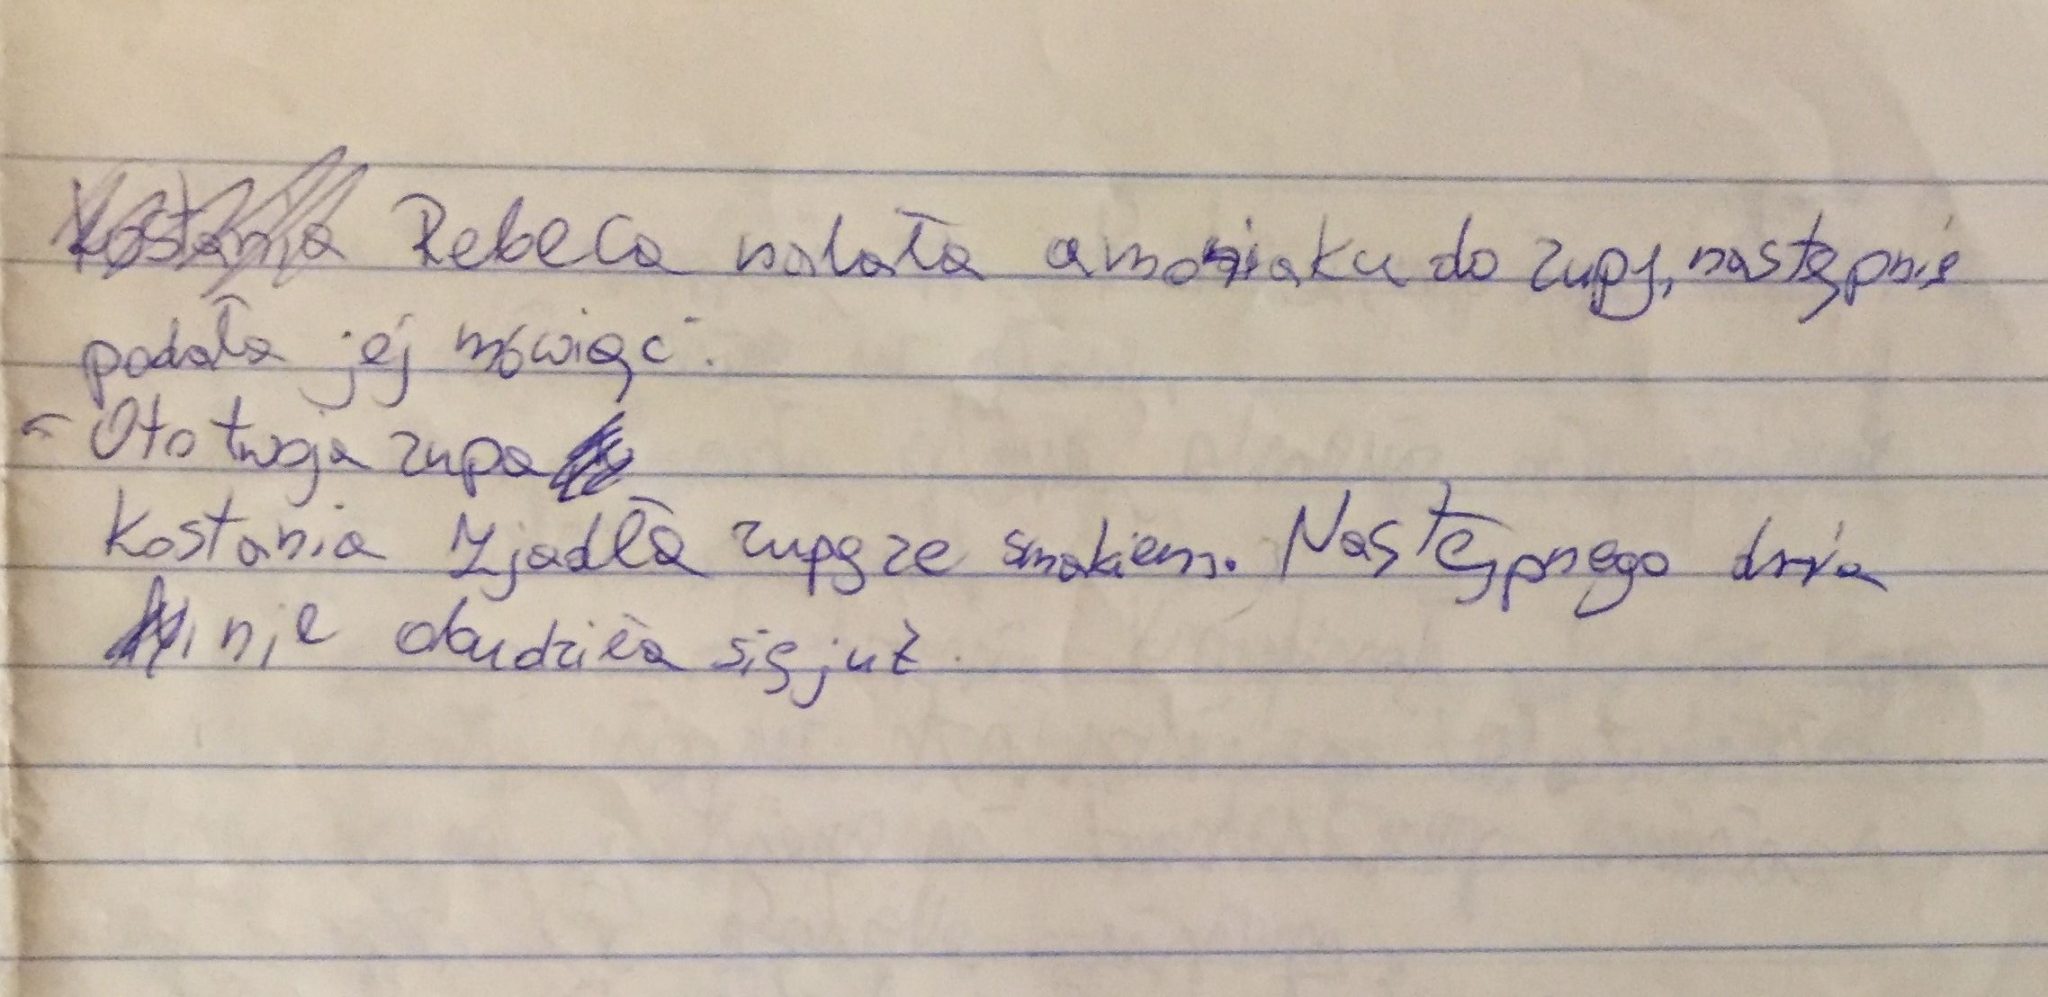 Kostania Rebeca nalała amoniaku do zupy, następnie
podała jej mówiąc:
- Oto twoja zupa
Kostania zjadła zupę ze smakiem. Następnego dnia
nie obudziła się już.